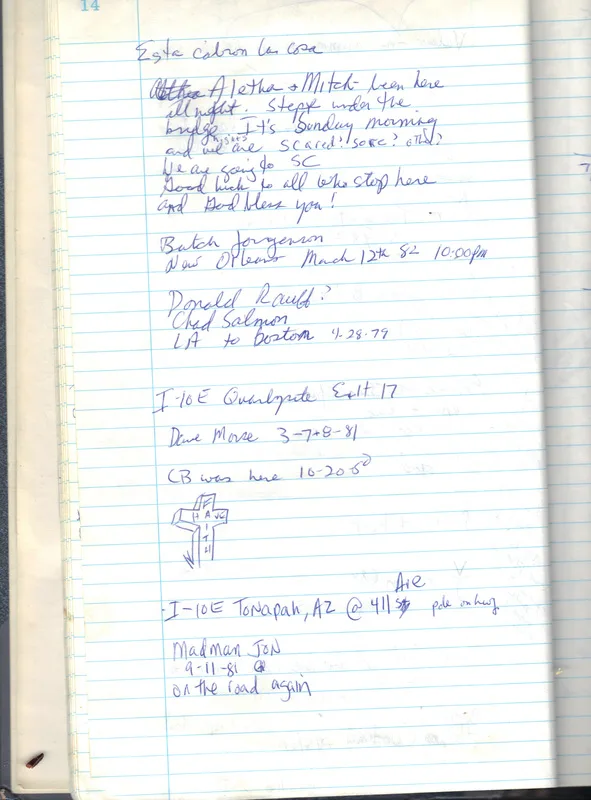 14
Esta cabron las cosa
Aletha + Mitch been here
all night. Slept under the
bridge. It's Sunday morning
nights
and we are scared? sore? other?
We are going to SC
Good luck to all who stop here
and God bless you!
Butch Jorgenson
New Orleans March 12th 82 10:00pm
Donald Rauff?
Chad Salmon
LA to boston 9-28-79
I-10E Quartzsite Exit 17
Dave Morse 3-7+8-81
CB was here 10-20-80
F
H A VE
I
T
H
Ave
I-10E Tonapah, AZ @ 411 pole on hwy
Madman Jon
9-11-81
on the road again